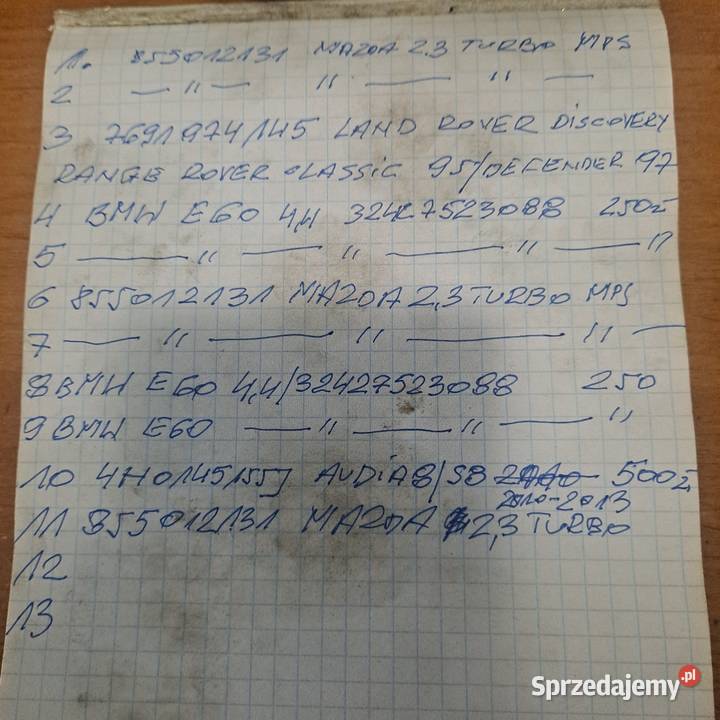 1. 855012131 MAZDA 2.3 TURBO MPS
2 — " — " — " —
3 7691974/145 LAND ROVER DISCOVERY
RANGE ROVER CLASSIC 95/DEFENDER 97
4 BMW E60 4,4 32427523088 250zł
5 — " — " — " — "
6 855012131 MAZDA 2,3 TURBO MPS
7 — " — " — " —
8 BMW E60 4,4/32427523088 250
9 BMW E60 — " — " — "
10 4H0145155J AUDI A8/S8 500zł
2010-2013
11 855012131 MAZDA 2,3 TURBO
12
13
Sprzedajemy.pl